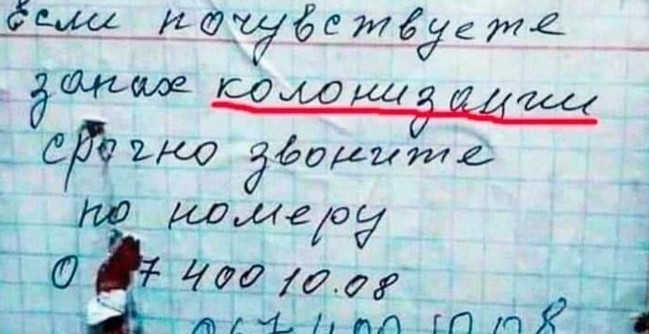 Если почувствуете
запах колонизации
срочно звоните
по номеру
0 7 400 10.08
067 400 10.08